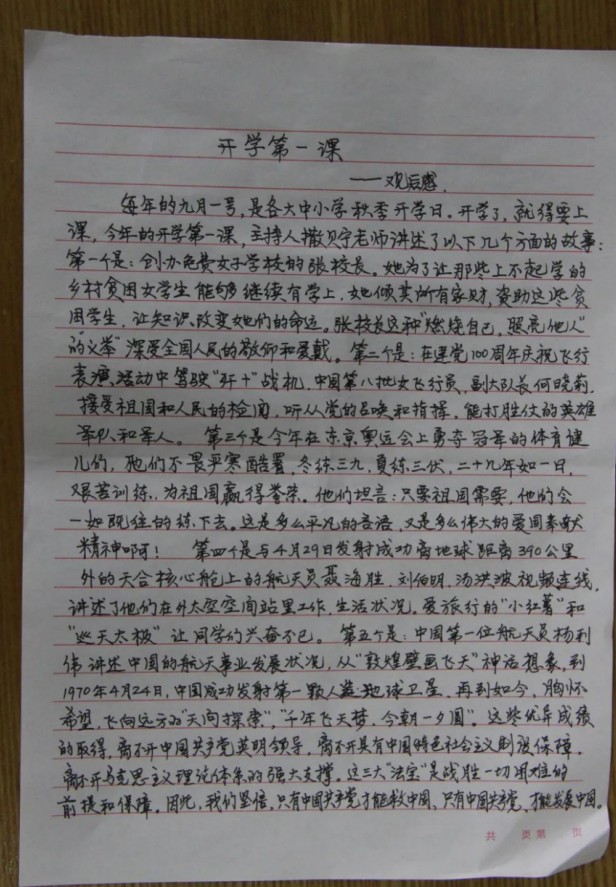 开学第一课
——观后感.
每年的九月一号,是各大中小学秋季开学日。开学了,就得要上
课,今年的开学第一课,主持人撒贝宁老师讲述了以下几个方面的故事:
第一个是:创办免费女子学校的张校长。她为了让那些上不起学的
乡村贫困女学生能够继续有学上,她倾其所有家财,资助这些贫
困学生,让知识改变她们的命运。张校长这种“燃烧自己,照亮他人”
的“义举”深受全国人民的敬仰和爱戴。第二个是:在建党100周年庆祝飞行
表演活动中驾驶“歼十”战机,中国第八批女飞行员,副大队长何晓莉,
接受祖国和人民的检阅,听从党的召唤和指挥,能打胜仗的英雄
军队和军人。第三个是今年在东京奥运会上勇夺冠军的体育健
儿们,他们不畏严寒酷暑,冬练三九,夏练三伏,二十九年如一日,
艰苦训练,为祖国赢得誉荣。他们坦言:只要祖国需要,他们会
一如既往的练下去。这是多么平凡的言语,又是多么伟大的爱国奉献
精神啊!第四个是与4月29日发射成功离地球距离390公里
外的天合核心舱上的航天员聂海胜,刘伯明,汤洪波视频连线,
讲述了他们在外太空空间站里工作,生活状况。爱旅行的“小红薯”和
“巡天太极”让同学们兴奋不已。第五个是:中国第一位航天员杨利
伟讲述中国的航天事业发展状况,从“敦煌壁画飞天”神话想象,到
1970年4月24日,中国成功发射第一颗人造地球卫星,再到如今,胸怀
希望,飞向远方的“天问探索”,“千年飞天梦,今朝一夕圆”。这些优异成绩
的取得,离不开中国共产党英明领导,离不开具有中国特色社会主义制度保障,
离不开马克思主义理论体系的强大支撑。这三大“法宝”是战胜一切困难的
前提和保障。因此,我们坚信,只有中国共产党才能救中国,只有中国共产党,才能发展中国。
共 页第 页